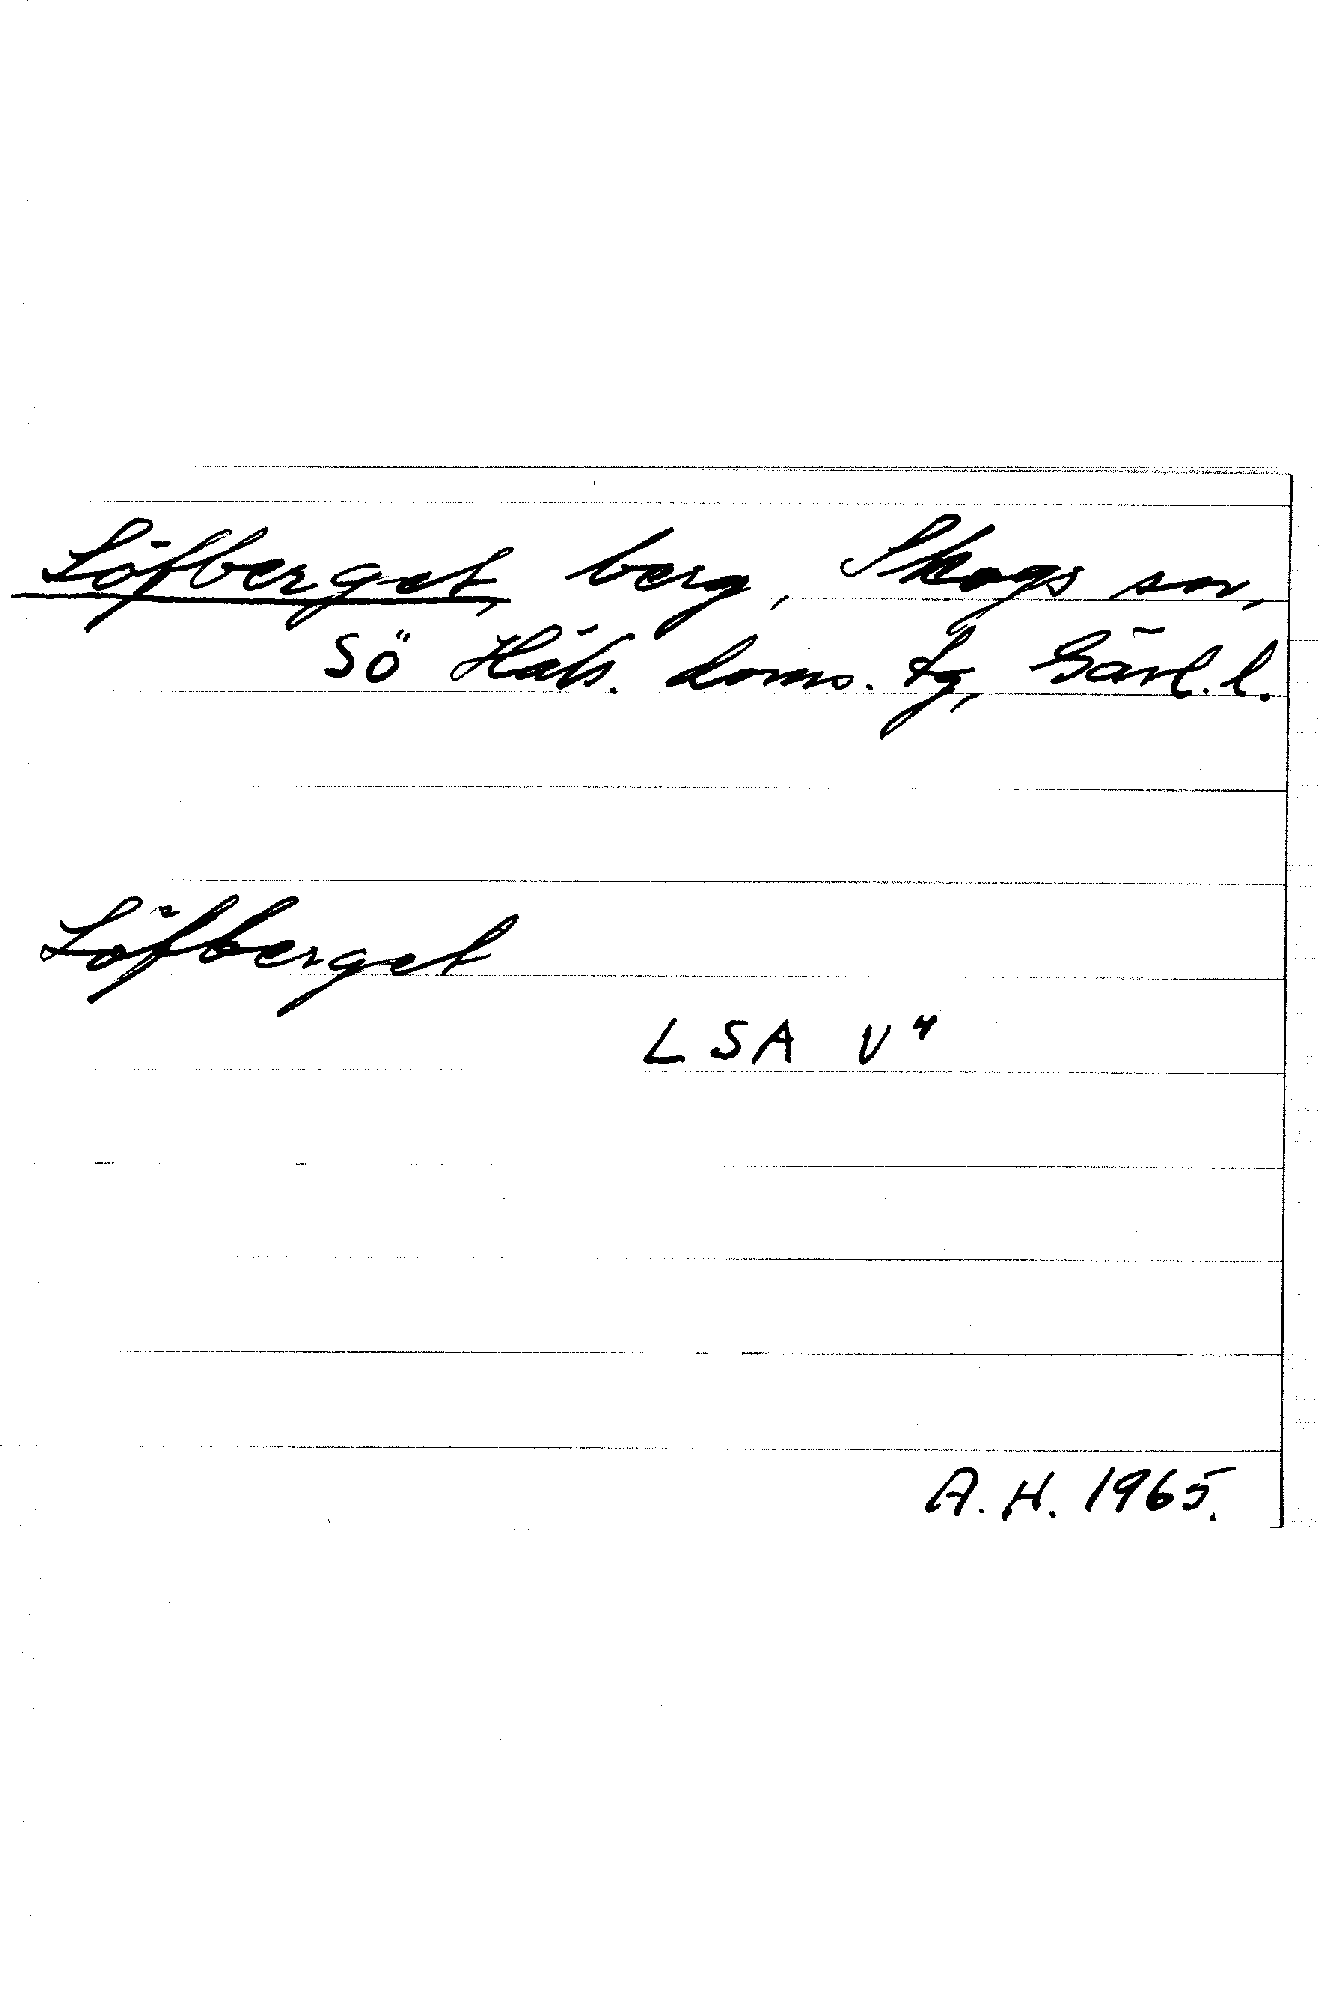 Löfberget, berg, Skogs sn,
Sö Häls. doms. tg, Gävl. l.
Löfberget
LSA V"
A. H. 1965.